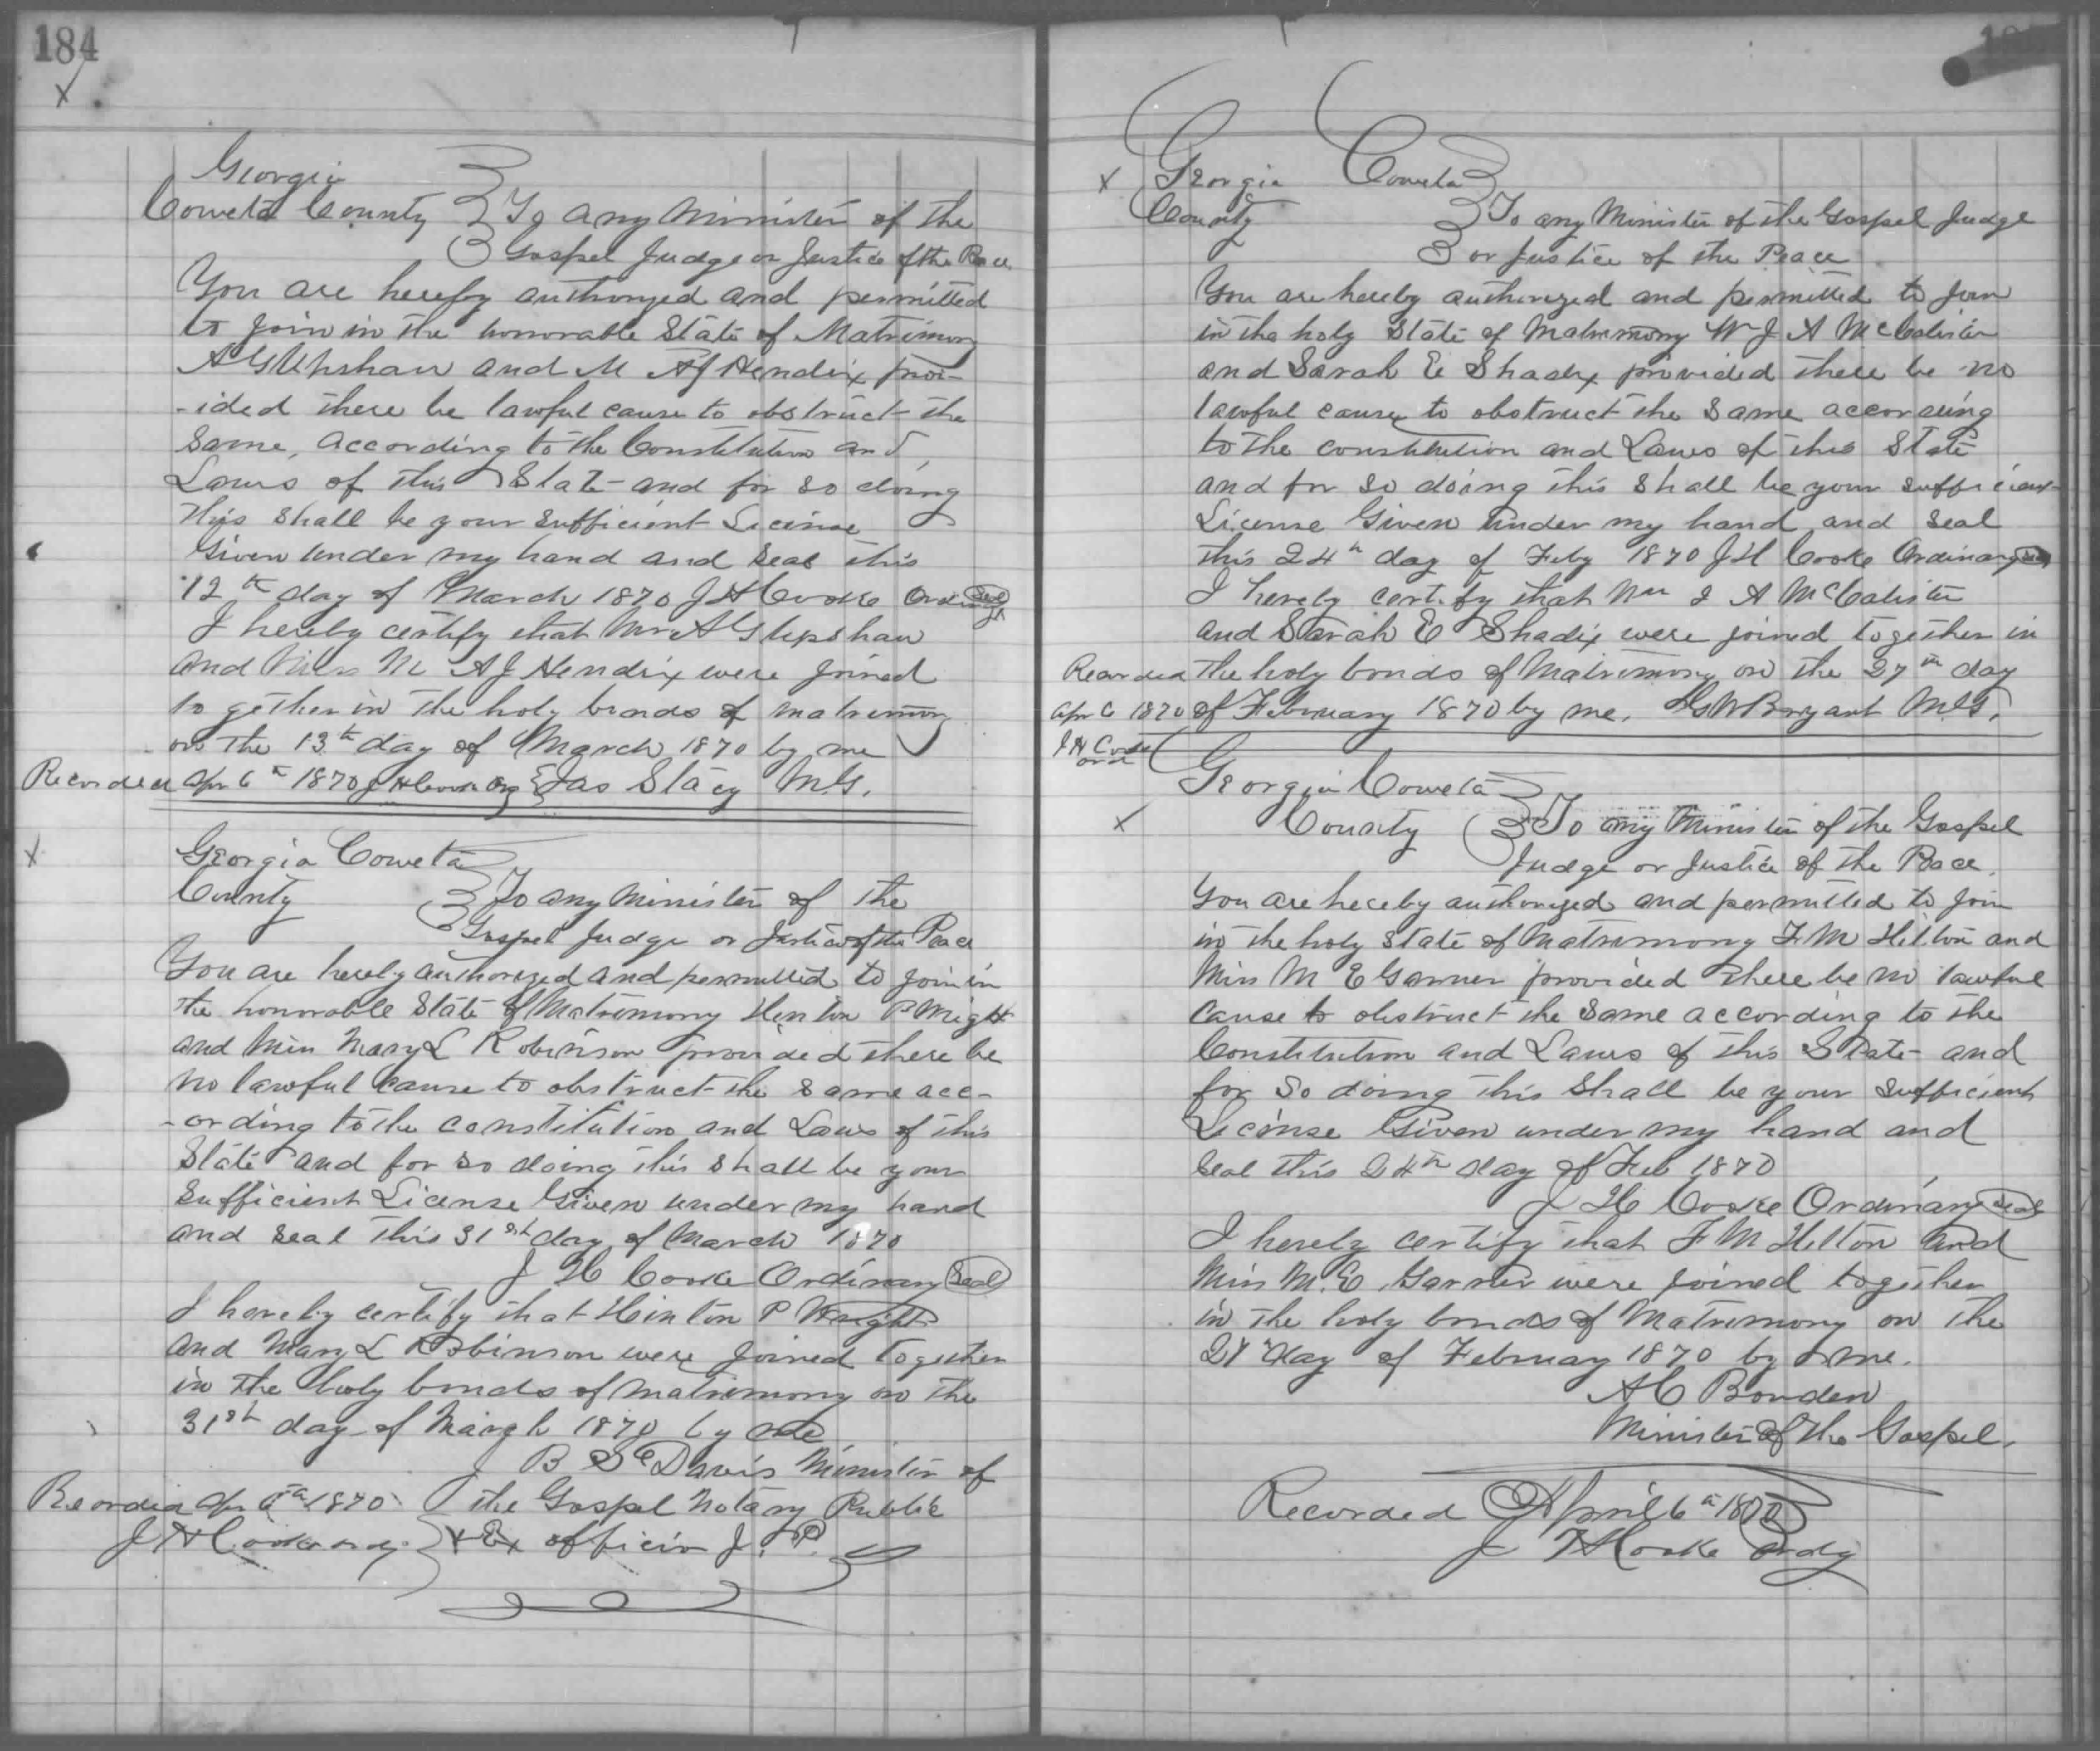 184
X
Georgia
Coweta County } To any Minister of the
Gospel Judge or Justice of the Peace
You are hereby authorized and permitted
to join in the honorable State of Matrimony
A G Upshaw and M A J Hendrix prov-
-ided there be lawful cause to obstruct the
same, according to the Constitution and
Laws of this State and for so doing
this shall be your sufficient License
Given under my hand and seal this
12th day of March 1870 J H Cooke Ord Seal
I hereby certify that Mr A G Upshaw
and Miss M A J Hendrix were joined
together in the holy bonds of matrimony
on the 13th day of March 1870 by me
Recorded Apr 6th 1870 J H Cooke Ordy } Jas Stacy M.G.
X
Georgia Coweta
County } To any Minister of the
Gospel Judge or Justice of the Peace
You are hereby authorized and permitted to join in
the honorable State of Matrimony Hinton P Wright
and Miss Mary L Robinson provided there be
no lawful cause to obstruct the same acc-
-ording to the constitution and Laws of this
State and for so doing this shall be your
sufficient License Given under my hand
and seal this 31st day of March 1870
J H Cooke Ordinary Seal
I hereby certify that Hinton P Wright
and Mary L Robinson were joined together
in the holy bonds of matrimony on the
31st day of March 1870 by me
B Davis Minister of
Recorded Apr 6th 1870 the Gospel Notary Public
J H Cooke ordy } & Ex officio J. P.
X
Georgia Coweta
County } To any Minister of the Gospel Judge
or Justice of the Peace
You are hereby authorized and permitted to join
in the holy State of Matrimony Wm J A McCalister
and Sarah E Shadix provided there be no
lawful cause to obstruct the same according
to the constitution and Laws of this State
and for so doing this shall be your sufficient
License Given under my hand and seal
this 24th day of Feby 1870 J H Cooke Ordinary Seal
I hereby certify that Wm J A McCalister
and Sarah E Shadix were joined together in
Recorded the holy bonds of Matrimony on the 27th day
Apr 6 1870 of February 1870 by me, G W Bryant M.G.
J H Cooke
ord
Georgia Coweta
X
County } To any Minister of the Gospel
Judge or Justice of the Peace.
You are hereby authorized and permitted to join
in the holy state of Matrimony F M Hilton and
Miss M E Garner provided there be no lawful
cause to obstruct the same according to the
Constitution and Laws of this State and
for so doing this shall be your sufficient
License Given under my hand and
seal this 24th day of Feb 1870
J H Cooke Ordinary Seal
I hereby certify that F M Hilton and
Miss M. E. Garner were joined together
in the holy bonds of Matrimony on the
27 day of February 1870 by me.
A C Bowden
Minister of the Gospel.
Recorded April 6th 1870
J H Cooke Ordy